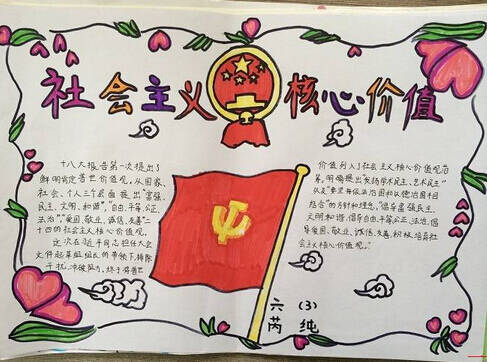 社会主义核心价值
十八大报告第一次提出了
鲜明肯定普世价值观。从国家、
社会、个人三个层面提出"富强、
民主、文明、和谐","自由、平等、公正、
法治","爱国、敬业、诚信、友善"二
十四的社会主义核心价值观。
这次在近平同志担任大会
文件起草组组长的带领下,排除
干扰、冲破阻力,终于将普世
价值列入了社会主义核心价值观范
畴。明确提出"发扬学术民主、艺术民主"
以及"要坚持依法治国和以德治国相
结合"的方针和理念。"倡导富强民主、
文明和谐,倡导自由、平等、公正、法治,倡
导爱国、敬业、诚信、友善,积极培育社
会主义核心价值观。"
六(3)
芮纯